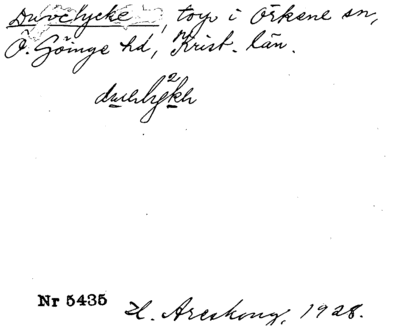 Duvelycke, torp i Örkene sn,
Ö. Göinge hd, Krist. län.
Nr 5435
H. Areskoug, 1928.